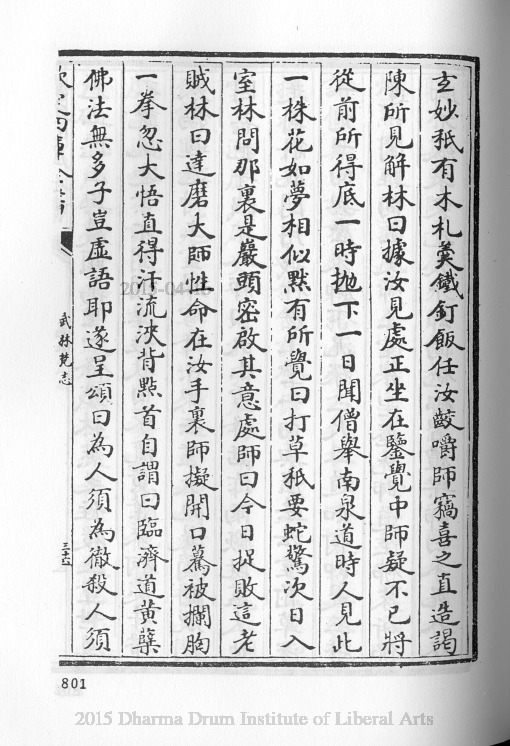 玄妙秖有木札羹鐵釘飯任汝齩嚼師竊喜之直造謁
陳所見解林曰據汝見處正坐在鑒覺中師疑不已將
從前所得底一時抛下一日聞僧舉南泉道時人見此
一株花如夢相似黙有所覺曰打草秖要蛇驚次日入
室林問那裏是巖頭密啟其意處師曰今日捉敗這老
賊林曰達磨大師性命在汝手裏師擬開口驀被攔胸
一拳忽大悟直得汗流浹背點首自謂曰臨濟道黄蘗
佛法無多子豈虛語耶遂呈頌曰為人須為徹殺人須
欽定四庫全書
武林梵志
801
2015 Dharma Drum Institute of Liberal Arts